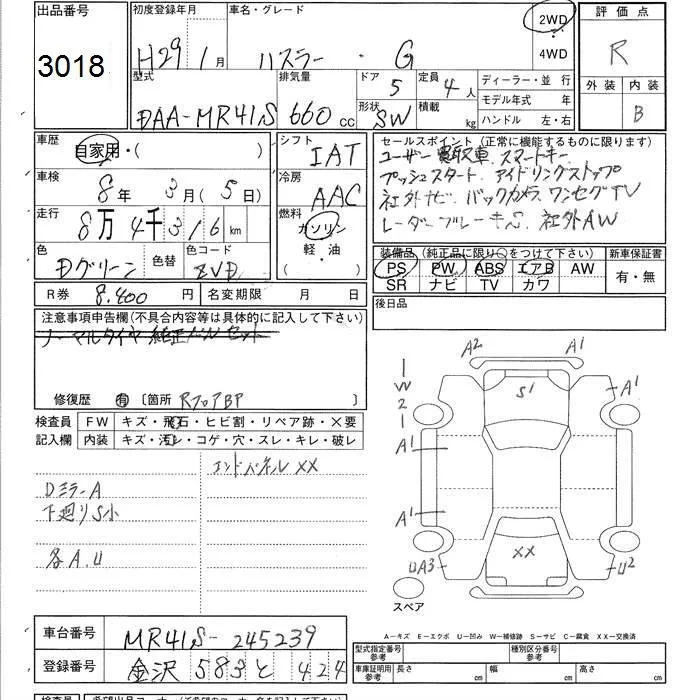 出品番号
3018
初度登録年月
H29年 1月
車名・グレード
ハスラー ・ G
2WD
・
4WD
評価点
R
外装 内装
B
型式
DAA-MR41S
排気量
660 cc
ドア
5
定員
4人
形状
SW
積載
kg
ディーラー・並 行
モデル年式 年
ハンドル 左・右
車歴
自家用・( )
シフト
IAT
車検
8年 3月(5日)
冷房
AAC
走行
8万4千316km
燃料
ガソリン
・
軽・油
( )
色
Dグリーン
色替
色コード
ZVD
R券 8.400円
名変期限 月 日
セールスポイント(正常に機能するものに限ります)
ユーザー買取車 スマートキー
プッシュスタート アイドリングストップ
社外ナビ バックカメラ ワンセグTV
レーダーブレーキS 社外AW
装備品(純正品に限り○をつけて下さい)
新車保証書
PS PW ABS エアB AW
SR ナビ TV カワ
有・無
後日品
注意事項申告欄(不具合内容等は具体的に記入して下さい)
ノーマルタイヤ 純正ホイル セット
修復歴 有 〔箇所 RフロアBP 〕
検査員 FW キズ・飛石・ヒビ割・リペア跡・×要
記入欄 内装 キズ・汚レ・コゲ・穴・スレ・キレ・破レ
エンドパネルXX
Dミラー A
下廻りS小
各A.U
A2 A1
1
W
2
1
S1
A1
A1
A1
XX
UA3
U2
スペア
A－キズ E－エクボ U－凹み W－補修跡 S－サビ C－腐食 XX－交換済
車台番号 MR41S-245239
登録番号 金沢 583 と 424
型式指定番号
参考
種別区分番号
参考
車庫証明用
参考
長さ cm 幅 cm 高さ cm